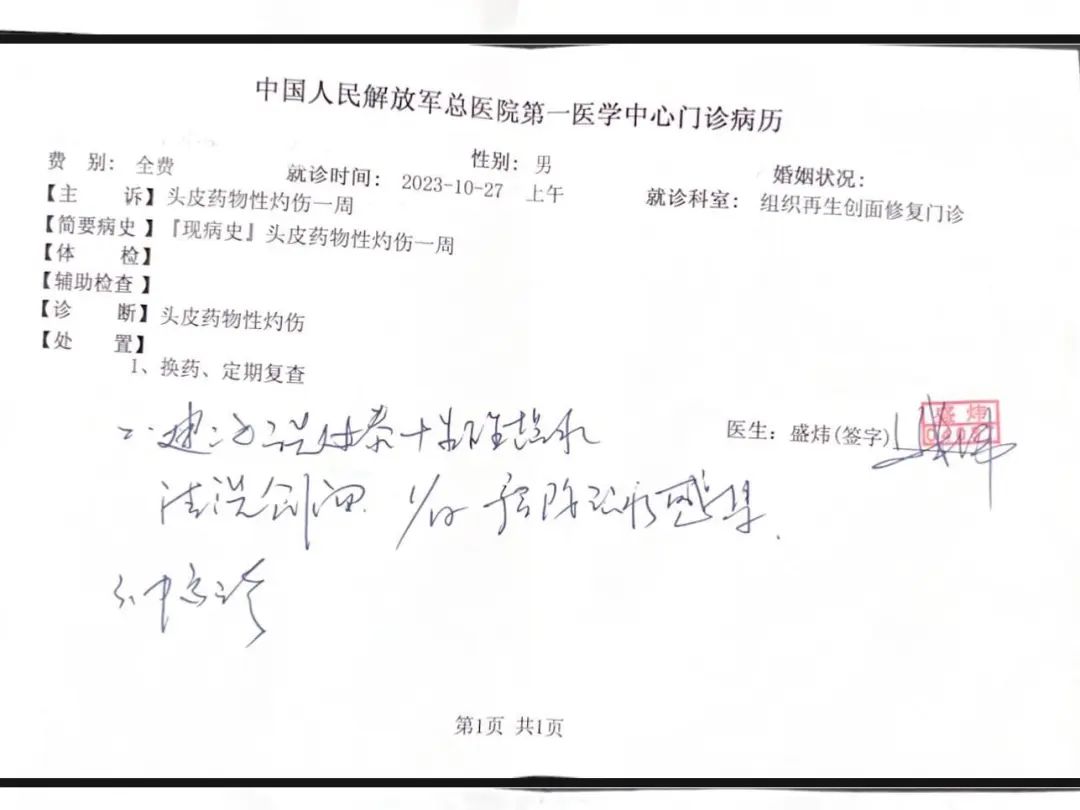 中国人民解放军总医院第一医学中心门诊病历
费 别: 全费 就诊时间: 2023-10-27 上午 性别: 男 就诊科室: 组织再生创面修复门诊 婚姻状况:
【主 诉】头皮药物性灼伤一周
【简要病史】『现病史』头皮药物性灼伤一周
【体 检】
【辅助检查】
【诊 断】头皮药物性灼伤
【处 置】
1、换药、定期复查
二.建
清洗创面 1/日 预防 感染.
医生: 盛炜(签字)
盛炜
第1页 共1页